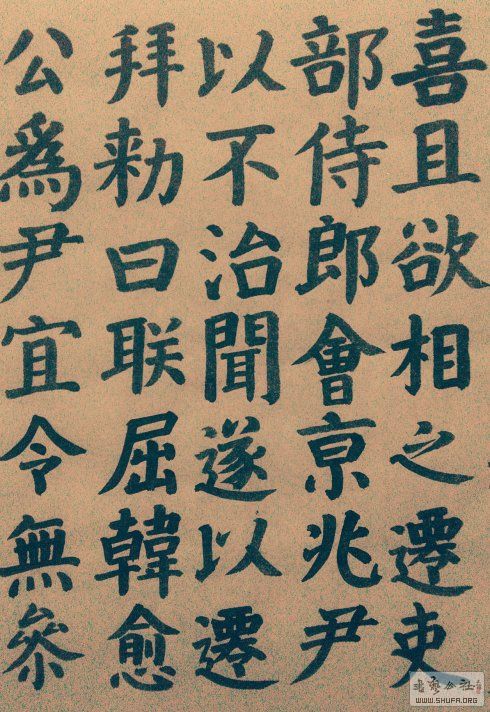 喜且欲相之遷吏
部侍郎會亰兆尹
以不治聞遂以遷
拜勑曰联屈韓愈
公爲尹宜令無參
WWW.SHUFA.ORG